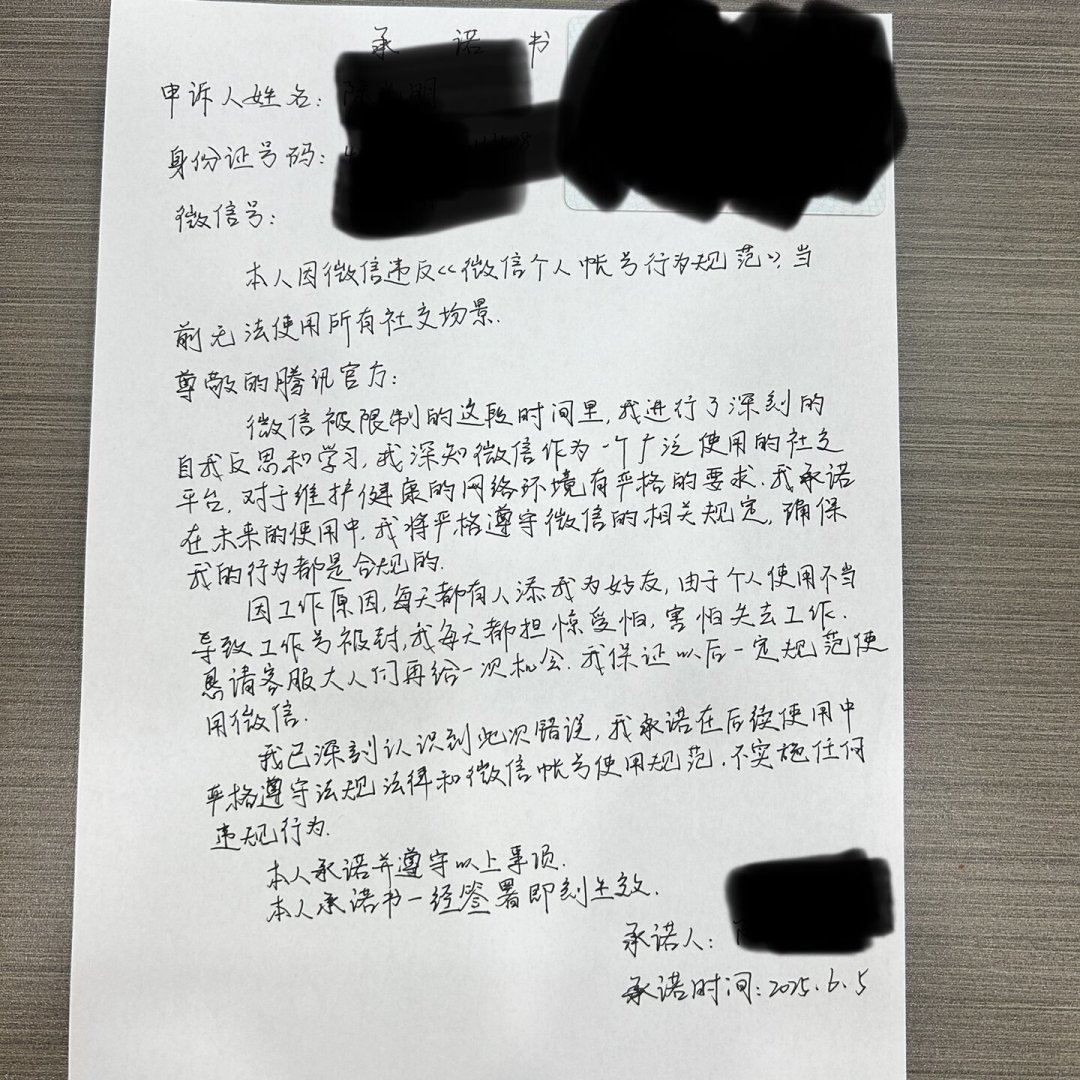 承 诺 书
申诉人姓名:
身份证号码:
微信号:
本人因微信违反《微信个人帐号行为规范》,当
前无法使用所有社交场景.
尊敬的腾讯官方:
微信被限制的这段时间里,我进行了深刻的
自我反思和学习,我深知微信作为一个广泛使用的社交
平台,对于维护健康的网络环境有严格的要求.我承诺
在未来的使用中,我将严格遵守微信的相关规定,确保
我的行为都是合规的.
因工作原因,每天都有人添我为好友,由于个人使用不当
导致工作号被封,我每天都担惊受怕,害怕失去工作.
恳请客服大人们再给一次机会.我保证以后一定规范使
用微信.
我已深刻认识到此次错误,我承诺在后续使用中
严格遵守法规法律和微信帐号使用规范.不实施任何
违规行为.
本人承诺并遵守以上事项.
本人承诺书一经签署即刻生效.
承诺人:
承诺时间:2025.6.5